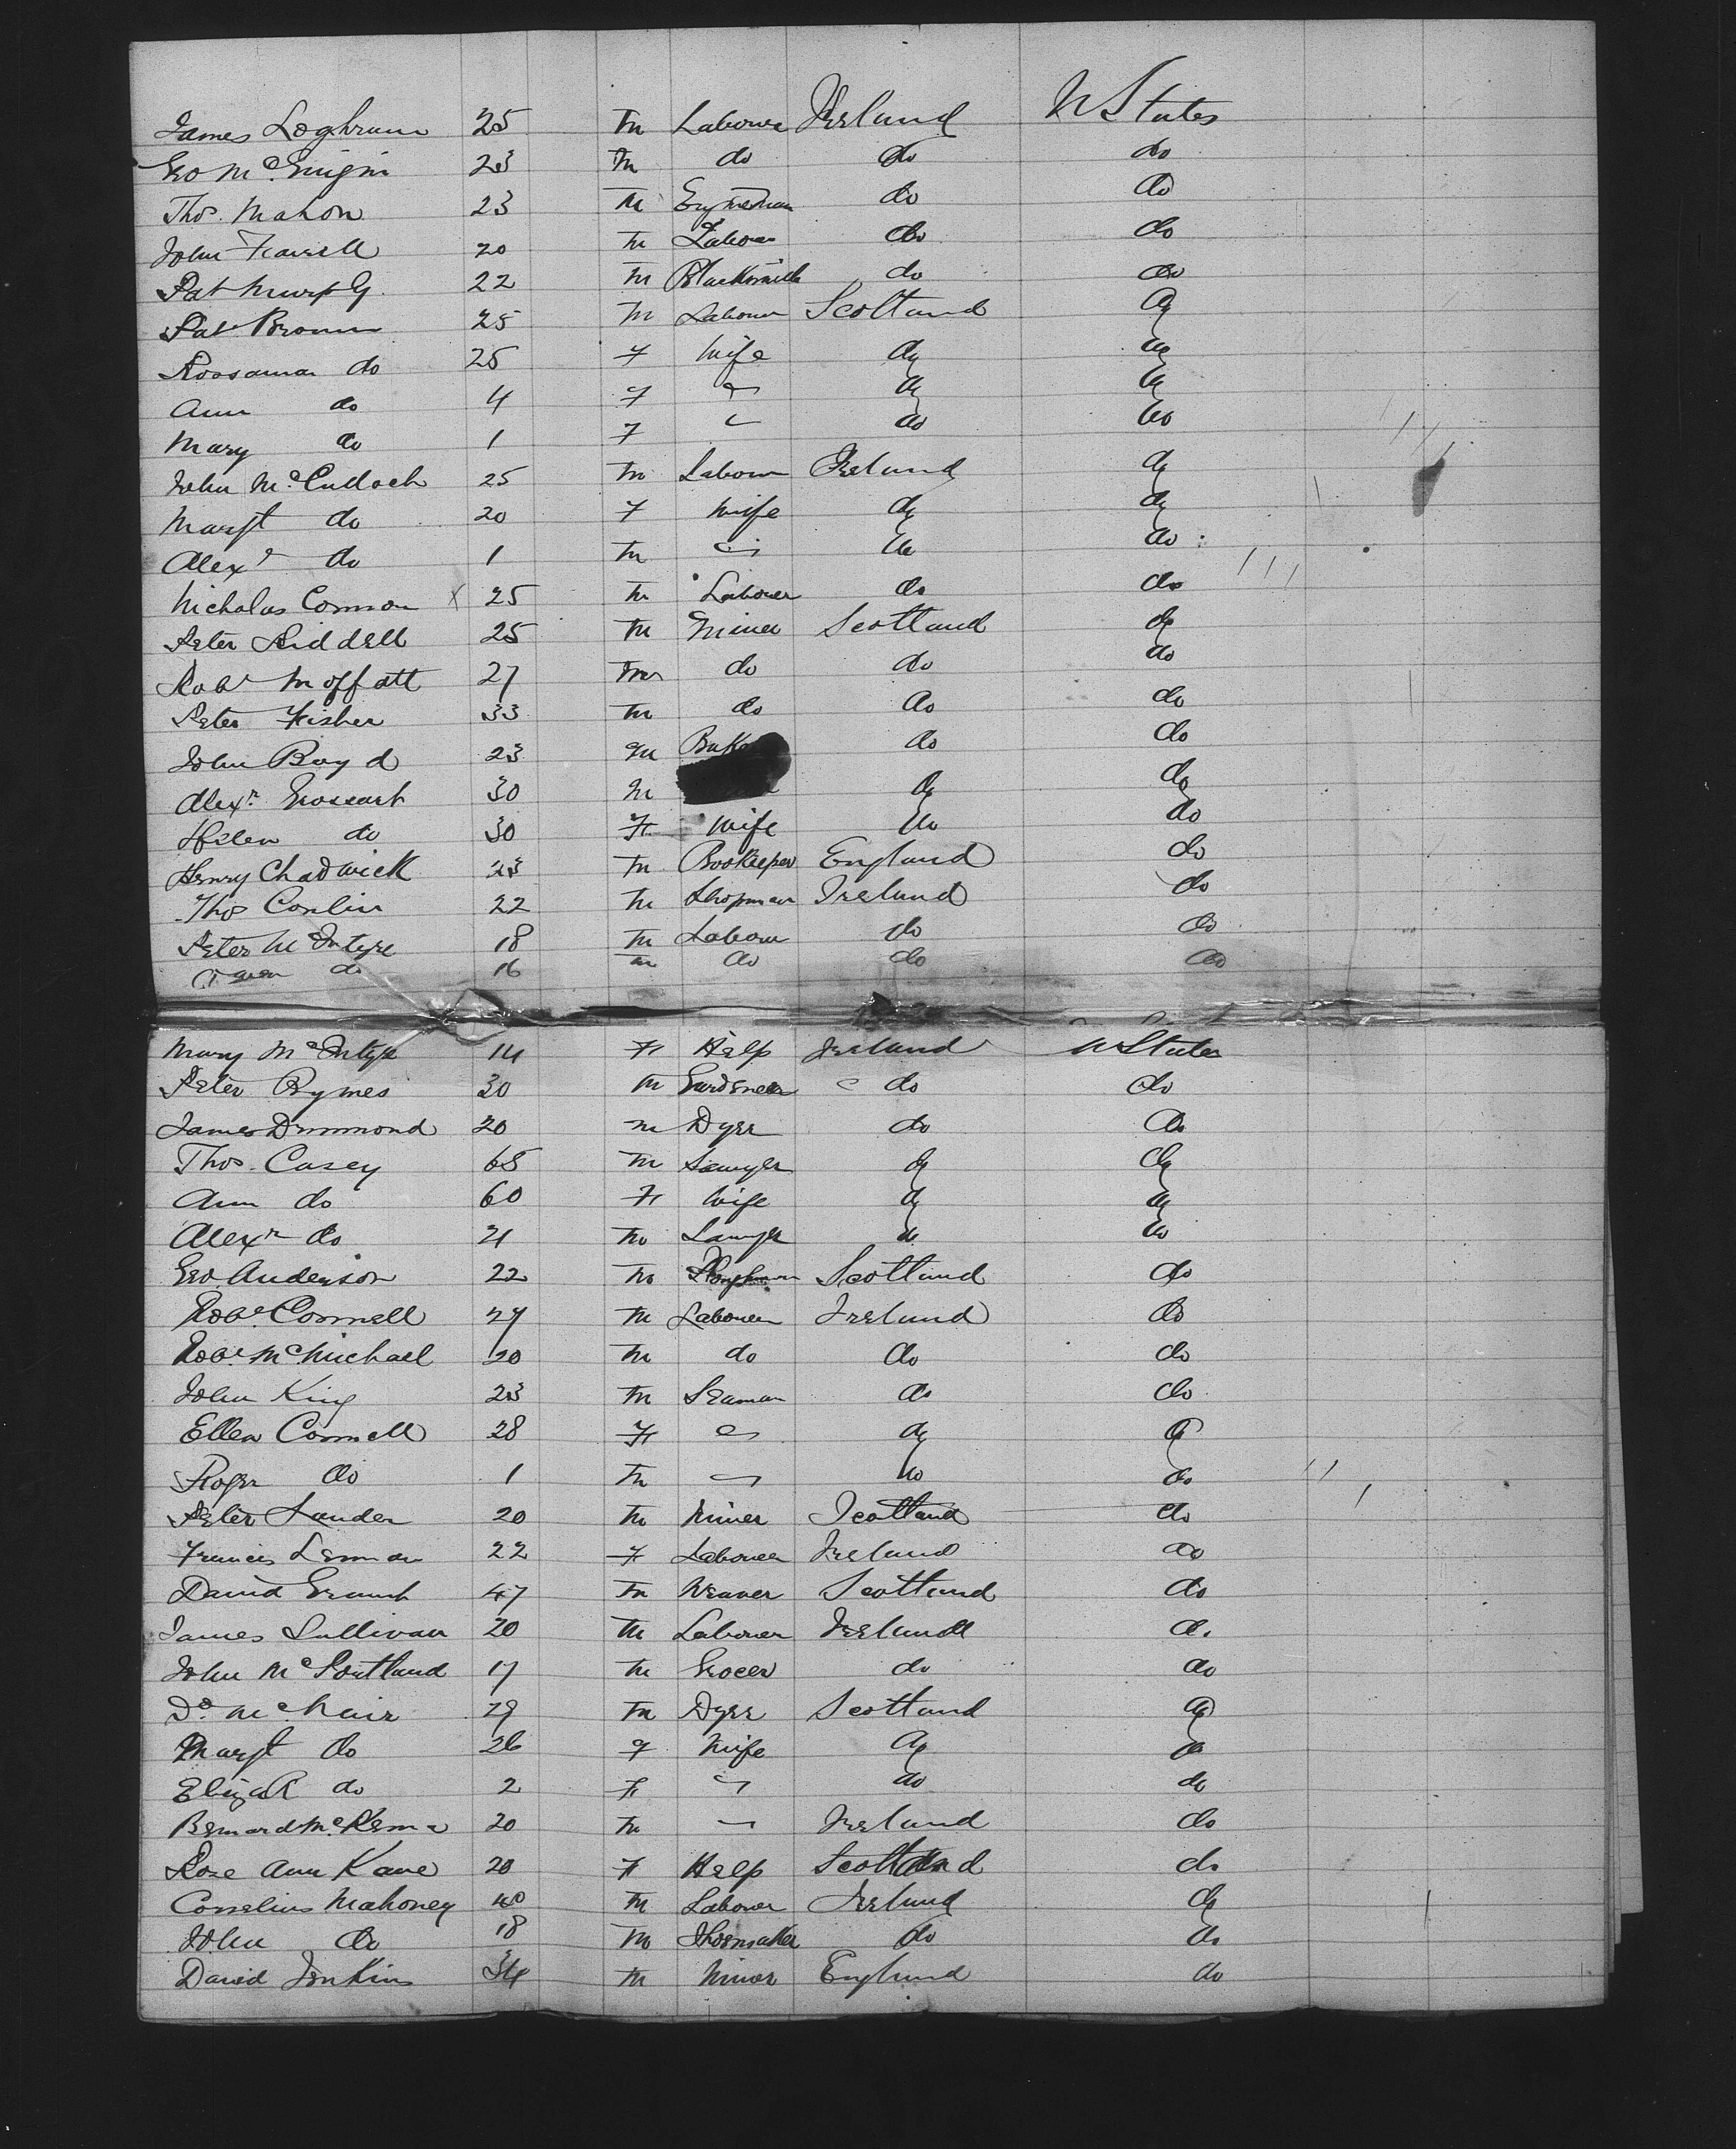 James Loghram 25 m Labourer Ireland U States
Geo McGuigin 23 m do do do
Thos. Mahon 23 m Engineman do do
John Farrell 20 m Labourer do do
Pat Murphy 22 m Blacksmith do do
Pat Brown 25 m Labourer Scotland do
Rossanna do 25 F Wife do do
Ann do 4 F " do do
Mary do 1 F " do do
John McCulloch 25 m Labourer Ireland do
Margt do 20 F Wife do do
Alexr do 1 m " do do
Nicholas Connon X 25 m Labourer do do
Peter Liddell 25 m Miner Scotland do
Robt Moffatt 27 m do do do
Peter Fisher 33 m do do do
John Boyd 23 m Baker do do
Alexr. 30 m do do
Helen do 30 F Wife do do
Henry Chadwick 23 m Bookeeper England do
Thos Conlin 22 m Shopman Ireland do
Peter McIntyre 18 m Labourer do do
Owen do 16 m do do do
Mary McIntyre 14 F Help Ireland U States
Peter Bymes 30 m Gardener do do
James Drummond 20 m Dyer do do
Thos. Casey 65 m Sawyer do do
Ann do 60 F Wife do do
Alexr do 21 m Sawyer do do
Geo. Anderson 22 m Ploughman Scotland do
Robt. Connell 27 m Labourer Ireland do
Robt. McMichael 20 m do do do
John King 23 m Seaman do do
Ellen Connell 28 F " do do
Roger do 1 m " do do
Peter Lauder 20 m Miner Scotland do
Francis Lennon 22 F Labourer Ireland do
David Grant 47 m Weaver Scotland do
James Sullivan 20 m Labourer Ireland do
John McPortland 17 m Grocer do do
Dd. McNair 29 m Dyer Scotland do
Margt do 26 F Wife do do
Elizath do 2 F " do do
Bernard McKenna 20 m " Ireland do
Rose Ann Kane 20 F Help Scotland do
Cornelius Mahoney 40 m Labourer Ireland do
John do 18 m Shoemaker do do
David Jenkins 34 m Miner England do